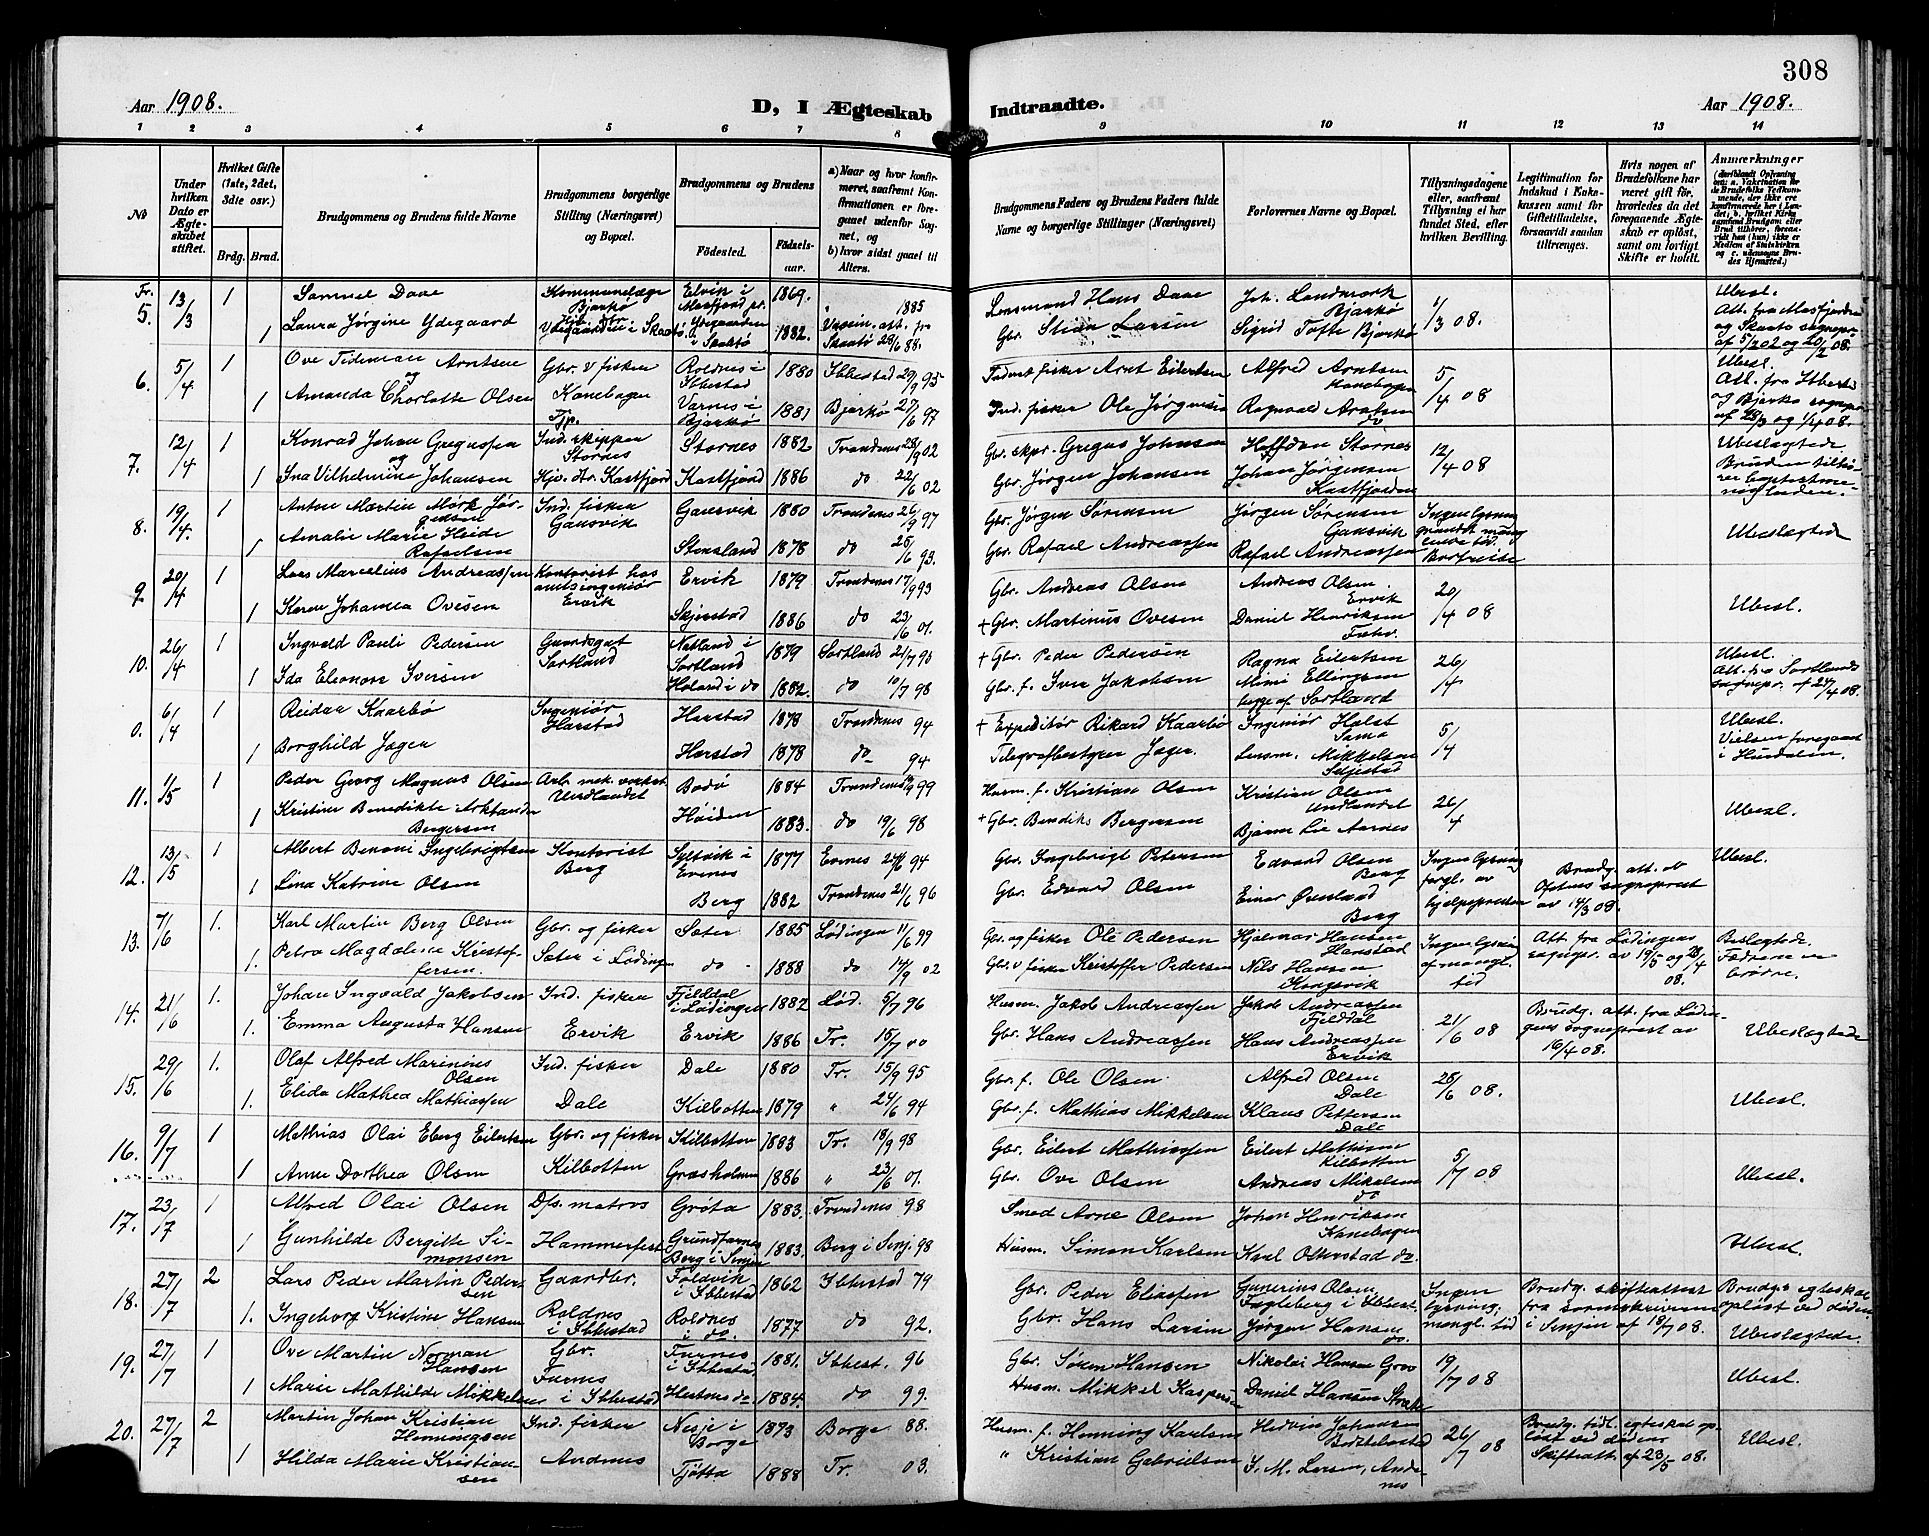 308
Aar 1908.
D, I Ægteskab
Indtraadte.
Aar 1908.
1 2 3 4 5 6 7 8 9 10 11 12 13 14
No
Under hvilken Dato er Ægteskabet stiftet.
Hvilket Gifte (1ste, 2det, 3die osv.)
Brdg. Brud.
Brudgommens og Brudens fulde Navne
Brudgommens borgerlige Stilling (Næringsvei) og Bopæl.
Brudgommens og Brudens
Födested.
Födselsaar.
a) Naar og hvor konfirmeret, saafremt Konfirmationen er foregaaet udenfor Sognet, og
b) hvor sidst gaaet til Alters.
Brudgommens Faders og Brudens Faders fulde Navne og borgerlige Stillinger (Næringsvei)
Forlovernes Navne og Bopæl.
Tillysningsdagene eller, saafremt Tillysning ei har fundet Sted, efter hvilken Bevilling.
Legitimation for Indskud i Enkekassen samt for Giftetilladelse, forsaavidt saadan tiltrænges.
Hvis nogen af Brudefolkene har været gift för, hvorledes da det foregaaende Ægteskab er oplöst, samt om lovligt Skifte er holdt.
Anmærkninger
Fr. 5. 13/3 1 Samuel Daae Kommunelæge Bjarkø Elvik i Masfjord pr. 1869. Lensmand Hans Daae Joh. Landmark Bjarkø 1/3 08. Ubesl.
1 Laura Jørgine Ydegaard Ydegaarden i Skaatø 1882. Vaccin. att. fra Skaatø 28/6 88. Gbr. Stian Larsen Sigrid Tofte Bjarkø Att. fra Masfjorden og Skaatø sognepr. af 5/2 02 og 20/2 08.
6. 5/4 1 Ove Tideman Arntsen og Gbr. & fisker Kanebogen Roldnes i Ibbestad 1880 Ibbestad 29/9 95 fisker Arnt Eilertsen Alfred Arntsen Kanebogen 5/4 08 Ubesl.
1 Amanda Charlotte Olsen Varnes i Bjarkø 1881 Bjarkø 27/6 97 Ind. fisker Ole Jørgensen Ragnvald Arntsen do Att. fra Ibbestad og Bjarkø sognepr. af 28/3 og 1/4 08.
7. 12/4 1 Konrad Johan Gregussen og Ind. skipper Stornes Stornes 1882 Trondenes 28/9 02 Gbr. skpr. Gregus Johnsen Halfdan Stornes 12/4 08 Ubeslægtede
1 Ina Vilhelmine Johansen Kastfjord Kastfjord 1886 do 22/6 02 Gbr. Jørgen Johansen Johan Jørgensen Kastfjorden Bruden tilhører baptistmenigheden.
8. 19/4. 1 Anton Martin Mørk Jørgensen Ind. fisker Gansvik Gansvik 1880 Trondenes 26/9 97 Gbr. Jørgen Sørensen Jørgen Sørensen Gansvik Ingen lysning Ubeslægtede
1 Amalie Marie Heide Rafaelsen Stensland 1878 do 25/6 93. Gbr. Rafael Andreassen Rafael Andreassen
9. 20/4 1 Lars Marcelius Andreassen Kontorist hos amtsingeniør Ervik Ervik 1879 Trondenes 17/9 93 Gbr. Andreas Olsen Andreas Olsen Ervik 20/4 08 Ubesl.
1 Karen Johanna Ovesen Skjerstad 1886 do 23/6 01. + Gbr. Martinus Ovesen Daniel Henriksen
10. 26/4 1 Ingvald Pauli Pedersen Gaardsgut Sortland Natland i Sortland 1879 Sortland 21/7 95 + Gbr. Peder Pedersen Ragna Eilertsen 26/4 Ubesl.
1 Ida Eleonore Iversen Holand i do 1882. do 10/7 98 Gbr. f. Iver Jakobsen Mimi Ellingsen begge af Sortland Att. fra Sortlands sognepr. af 24/4 08.
0. 6/4 1 Reidar Kaarbø Ingeniør Harstad Harstad 1878 Trondenes 94 + Expeditør Rikard Kaarbø Ingeniør Holst Sama 5/4 Ubesl.
1 Borghild Jæger Harstad 1878 do 94 Telegrafbestyrer Jæger. Lensm. Mikkelsen Seljestad Vielsen foregaaet i Hurdalen.
11. 11/5 1 Peder Georg Magnus Olsen Arb. mek. verkst. Undlandet Bodø 1884 Trondenes 99 Husm. f. Kristian Olsen Kristian Olsen Undlandet 26/4 Ubesl.
1 Kristine Benedikte Arktander Bergersen Høiden 1883. do 19/6 98 + Gbr. Bendiks Bergersen Bjarne Lie Aarnes
12. 13/15 1 Albert Benoni Ingebrigtsen Kontorist Berg Sylvik i Evenes 1877 Evenes 24/6 94 Gbr. Ingebrigt Petersen Edvard Olsen Berg Ingen lysning forgl. av hjelpepresten Brudg. att. ab Ofotens sogneprest av 14/3 08. Ubesl.
1 Lina Katrine Olsen Berg 1882 Trondenes 21/6 96 Gbr. Edvard Olsen Einar Øvrelaad Berg
13. 7/16 1. Karl Martin Berg Olsen Gbr. og fisker Sæter 1885 Lødingen 11/6 99 Gbr. og fisker Ole Pedersen Hjalmar Hansen Hanstad Ingen lysning af mangl. tid Att. fra Lødingens sognepr. av 19/5 og 28/4 08. Beslægtede. Fædrene er brødre.
1. Petra Magdalene Kristoffersen. Sæter i Lødingen do 1888 do 14/9 02 Gbr. & fisker Kristoffer Pedersen Nils Hansen Kongsvik
14. 21/6 1. Johan Ingvald Jakobsen Ind. fisker Fjelddal i Lødingen 1882 Lød. 5/7 96 Husm. Jakob Andreassen Jakob Andreassen Fjelddal 21/6 08 Brudg. att. fra Lødingens sogneprest av 16/4 08. Ubeslægtede
1. Emma Augusta Hansen Ervik Ervik 1886 Tr. 15/7 00 Gbr. Hans Andreassen Hans Andreassen Ervik
15. 29/6 1. Olaf Alfred Marinius Olsen Ind. fisker Dale 1880 Tr. 15/9 95 Gbr. f. Ole Olsen. Alfred Olsen Dale 28/6 08. Ubesl.
1. Elida Mathea Mathiassen Dale Kilbotten 1879 " 24/6 94 Gbr. f. Mathias Mikkelsen Klaus Pettersen Dale
16. 9/7 1 Mathias Olai Eberg Eilertsen Gbr. og fisker Kilbotten 1883 Tr. 18/9 98 Gbr. Eilert Mathiassen Eilert Mathiassen Kilbotten 5/7 08 Ubesl.
1 Anne Dorthea Olsen Kilbotten Græsholmen 1886 " 23/6 01. Gbr. Ove Olsen Andreas Mikalsen do
17. 23/7 1 Alfred Olai Olsen Dfs. matros Grøta 1883. Trondenes 98 Smed Arne Olsen Johan Henriksen Kanebogen
1 Gunhilde Bergitte Simonsen Hammerfest Grundfarnes Berg i Senjen 1883. Berg i Senj. 98 Husm. Simon Karlsen Karl Otterstad do. Ubesl.
18. 27/7 2 Lars Peder Martin Pedersen Gaardbr. Foldvik i Ibbestad 1862 Ibbestad 79 Gbr. Peder Eliassen Gunerius Olsen Fagleberg i Ibbest. Ingen lysning, mangl. tid Brudg. skifteattest fra sorenskriveren i Senjen af 18/7 08. Brudg. egteskab opløst ved døden.
1. Ingeborg Kristine Hansen Roldnes i Ibbestad Roldnes i do. 1877 do 92. Gbr. Hans Larsen Jørgen Hansen do. Ubeslægtede.
19. 27/7 1 Ove Martin Norman Hansen Gbr. Furnes i Ibbestad Furnes i Ibbestad. 1881. Ibbest. 96 Gbr. Søren Hansen Nikolai Hansen Grov 19/7 08 Ubesl.
1 Marie Mathilde Mikkelsen Hestnes do 1884. do 99. Husm. Mikkel Kaspersen Daniel Hansen
20. 27/7 2 Martin Johan Kristian Henningsen Ind. fisker Nesje i Borge 1873 Borge 88. Husm. f. Henning Karlsen Hedvin Johansen 26/7 08 Brudg. tidl. egteskab opløst ved døden Skifteatt. af 23/5 08. Ubesl.
1 Hilda Marie Kristiansen Andenes Tjøtta 1888 Tr. 03. " Kristian Gabrielsen I. M. Larsen, Andenes